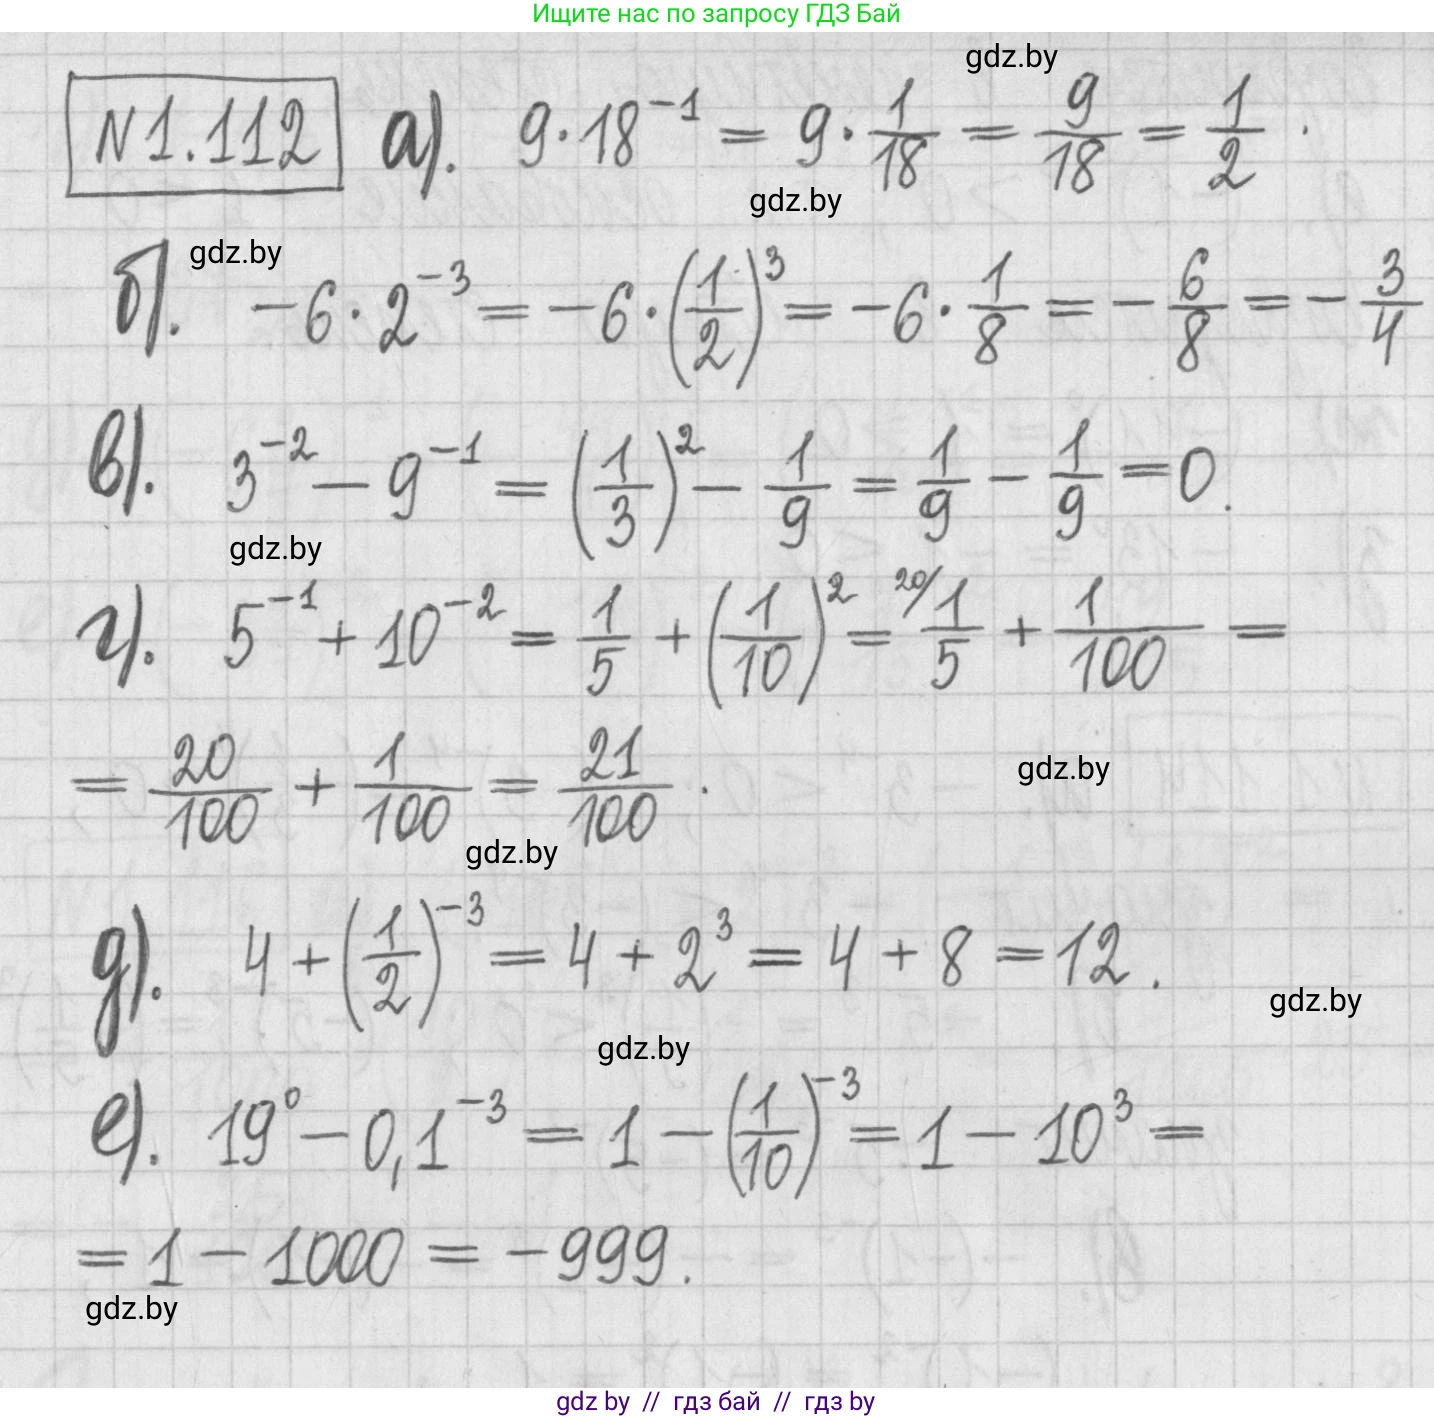 Ищите нас по запросу ГДЗ Бай
gdz.by
N1.112 а). 9·18⁻¹ = 9·1/18 = 9/18 = 1/2.
gdz.by
gdz.by
б). -6·2⁻³ = -6·(1/2)³ = -6·1/8 = -6/8 = -3/4
в). 3⁻² - 9⁻¹ = (1/3)² - 1/9 = 1/9 - 1/9 = 0.
gdz.by
г). 5⁻¹ + 10⁻² = 1/5 + (1/10)² = ²⁰⁾1/5 + 1/100 =
= 20/100 + 1/100 = 21/100.
gdz.by
gdz.by
д). 4 + (1/2)⁻³ = 4 + 2³ = 4 + 8 = 12.
gdz.by
gdz.by
е). 19⁰ - 0,1⁻³ = 1 - (1/10)⁻³ = 1 - 10³ =
= 1 - 1000 = -999.
gdz.by
gdz by // гдз бай // гдз by